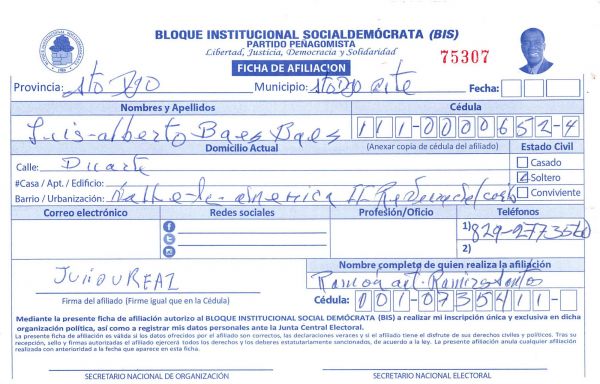 BLOQUE INSTITUCIONAL SOCIALDEMÓCRATA (BIS)
PARTIDO PEÑAGOMISTA
Libertad, Justicia, Democracia y Solidaridad
FICHA DE AFILIACION
75307
Provincia: Sto Dgo Municipio: Sto Dgo este Fecha:
Nombres y Apellidos Cédula
Luis-alberto Baes Baes 111-0000652-4
Domicilio Actual (Anexar copia de cédula del afiliado) Estado Civil
Calle: Duarte Casado
#Casa / Apt. / Edificio: Soltero
Barrio / Urbanización: america II Conviviente
Correo electrónico Redes sociales Profesión/Oficio Teléfonos
1) 829-2773560
2)
JUNOUREAL
Firma del afiliado (Firme igual que en la Cédula)
Nombre completo de quien realiza la afiliación
Ramon ant. Ramirez Santos
Cédula: 001-0735411-
Mediante la presente ficha de afiliación autorizo al BLOQUE INSTITUCIONAL SOCIAL DEMÓCRATA (BIS) a realizar mi inscripción única y exclusiva en dicha
organización política, así como a registrar mis datos personales ante la Junta Central Electoral.
La presente ficha de afiliación es válida si los datos ofrecidos por el afiliado son correctos, las declaraciones veraces y si el afiliado tiene el disfrute de sus derechos civiles y políticos. Tras su
recepción, sello y firmas autorizadas el afiliado ejercerá todos los derechos y los deberes estatutariamente sancionados, de acuerdo a la ley. La presente afiliación anula cualquier afiliación
realizada con anterioridad a la fecha que aparece en esta ficha.
SECRETARIO NACIONAL DE ORGANIZACIÓN SECRETARIO NACIONAL ELECTORAL